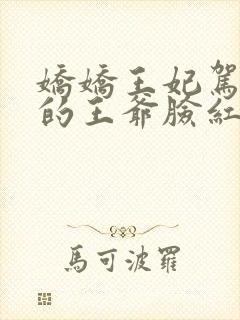 嬌嬌王妃駕
的王爺臉紅
馬可波羅